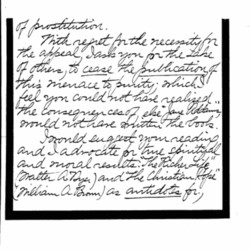 of prostitution.
With regret for the necessity for
the appeal, I ask you for the sake
of others, to cease the publication of
this menace to purity; which I
feel you could not have realized
the consequences of, else you
would not have written the book.
I would suggest your reading
and I advocate for true
and moral results: "The Richer Life"
Walter A.        and the Christian
William A.        as antidotes for,